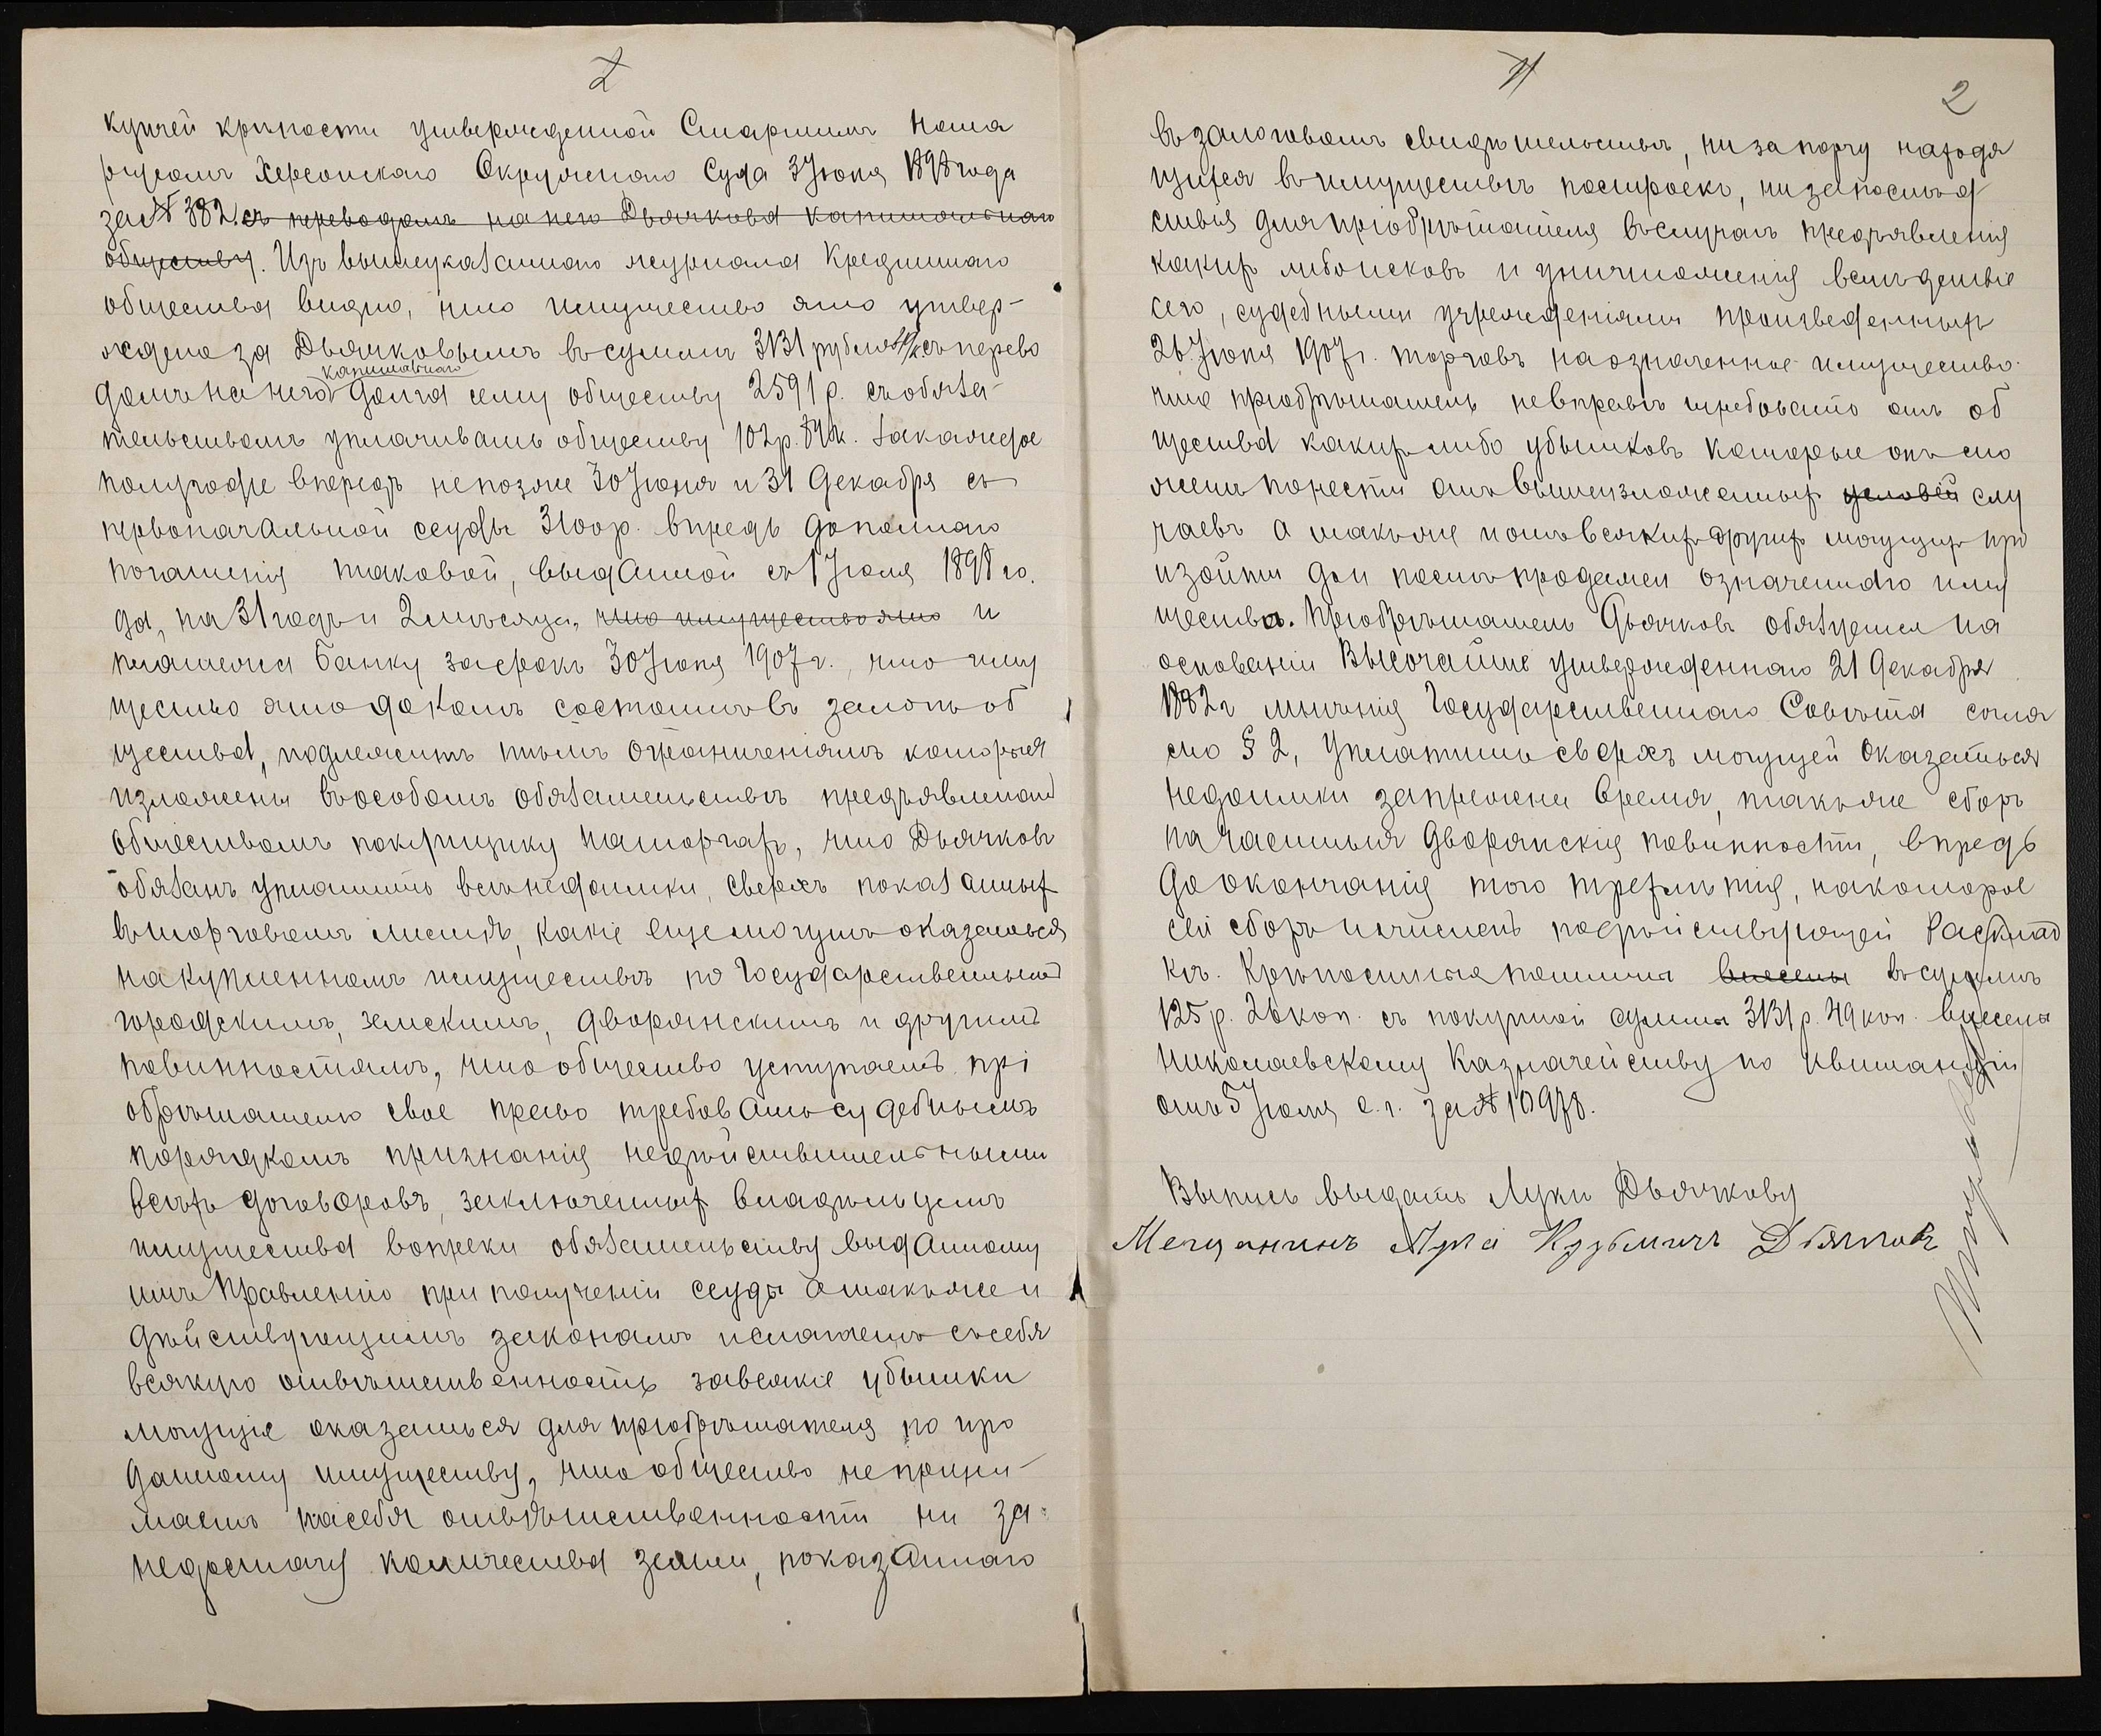 2
купчей крѣпости утвержденной Старшимъ Нота
ріусомъ Херсонскаго Окружнаго Суда 3 Іюня 1898 года
за № 382. съ переводомъ на него Дьячкова капитальнаго
обществу. Изъ вышеуказаннаго журнала Кредитнаго
общества видно, что имущество это утвер-
ждено за Дьячковымъ въ суммѣ 3131 рубля 49 к съ перево
капитальнаго
домъ на него долга сему обществу 2591 р. съ обяза-
тельствомъ уплачивать обществу 102 р. 84 к. за каждое
полугодіе впередъ не позже 30 Іюня и 31 Декабря съ
первоначальной ссуды 3100 р. впредь до полнаго
погашенія таковой, выданной съ 1 Іюля 1898 го.
да, на 31 годъ и 2 мѣсяца, что имущество это и
платежа банку за срокъ 30 Іюня 1907 г., что иму
щество это доколѣ состоитъ въ залогѣ об
щества, подлежитъ тѣмъ ограниченіямъ которыя
изложены въ особомъ обязательствѣ предъявленомъ
обществомъ покупщику на торгахъ, что Дьячковъ
обязанъ уплатить всѣ недоимки, сверхъ показанныхъ
въ торговомъ листѣ, какіе еще могутъ оказаться
на купленномъ имуществѣ по Государственнымъ
городскимъ, земскимъ, дворянскимъ и другимъ
повинностямъ, что общество уступаетъ прі
обрѣтателю свое право требовать судебнымъ
порядкомъ признанія недѣйствительными
всѣхъ договоровъ, заключенныхъ владѣльцемъ
имущества вопреки обязательству выданному
имъ Правленію при полученіи ссуды а также и
дѣйствующимъ законамъ и слагаетъ съ себя
всякую отвѣтственность за всякіе убытки
могущіе оказаться для пріобрѣтателя по про
данному имуществу, что общество не прини-
маетъ на себя отвѣтственности ни за
недостачу количества земли, показаннаго
2
въ залоговомъ свидѣтельствѣ, ни за порчу находя
щихся въ имуществѣ построекъ, ни за послѣд
ствія для пріобрѣтателя въ случаѣ предъявленія
какихъ либо исковъ и уничтоженія вслѣдствіе
сего, судебными учрежденіями произведенныхъ
26 Іюня 1907 г. торговъ на означенное имущество
что пріобрѣтатель не вправѣ требовать отъ об
щества какихъ либо убытковъ которые онъ смо
жетъ понести отъ вышеизложенныхъ условій слу
чаевъ а также и отъ всякихъ другихъ могущихъ про
изойти для послѣ продажи означеннаго иму
щества. Пріобрѣтатель Дьячковъ обязуется на
основаніи Высочайше утвержденнаго 21 Декабря
1882 г мнѣнія Государственнаго Совѣта согла
сно § 2, уплатить сверхъ могущей оказаться
недоимки за прежнее время, также сборъ
на частныя дворянскія повинности, впредь
до окончанія того трехлѣтія, на которое
сей сборъ исчисленъ по дѣйствующей Расклад
кѣ. Крѣпостныя пошлины внесены въ суммѣ
125 р. 26 коп. съ покупной суммы 3131 р. 49 коп. внесены
Николаевскому Казначейству по квитанціи
отъ 5 Іюля с. г. за № 10978.
Выпись выдать Луки Дьячкову
Мещанинъ Лука Кузьмичъ Дьячковъ